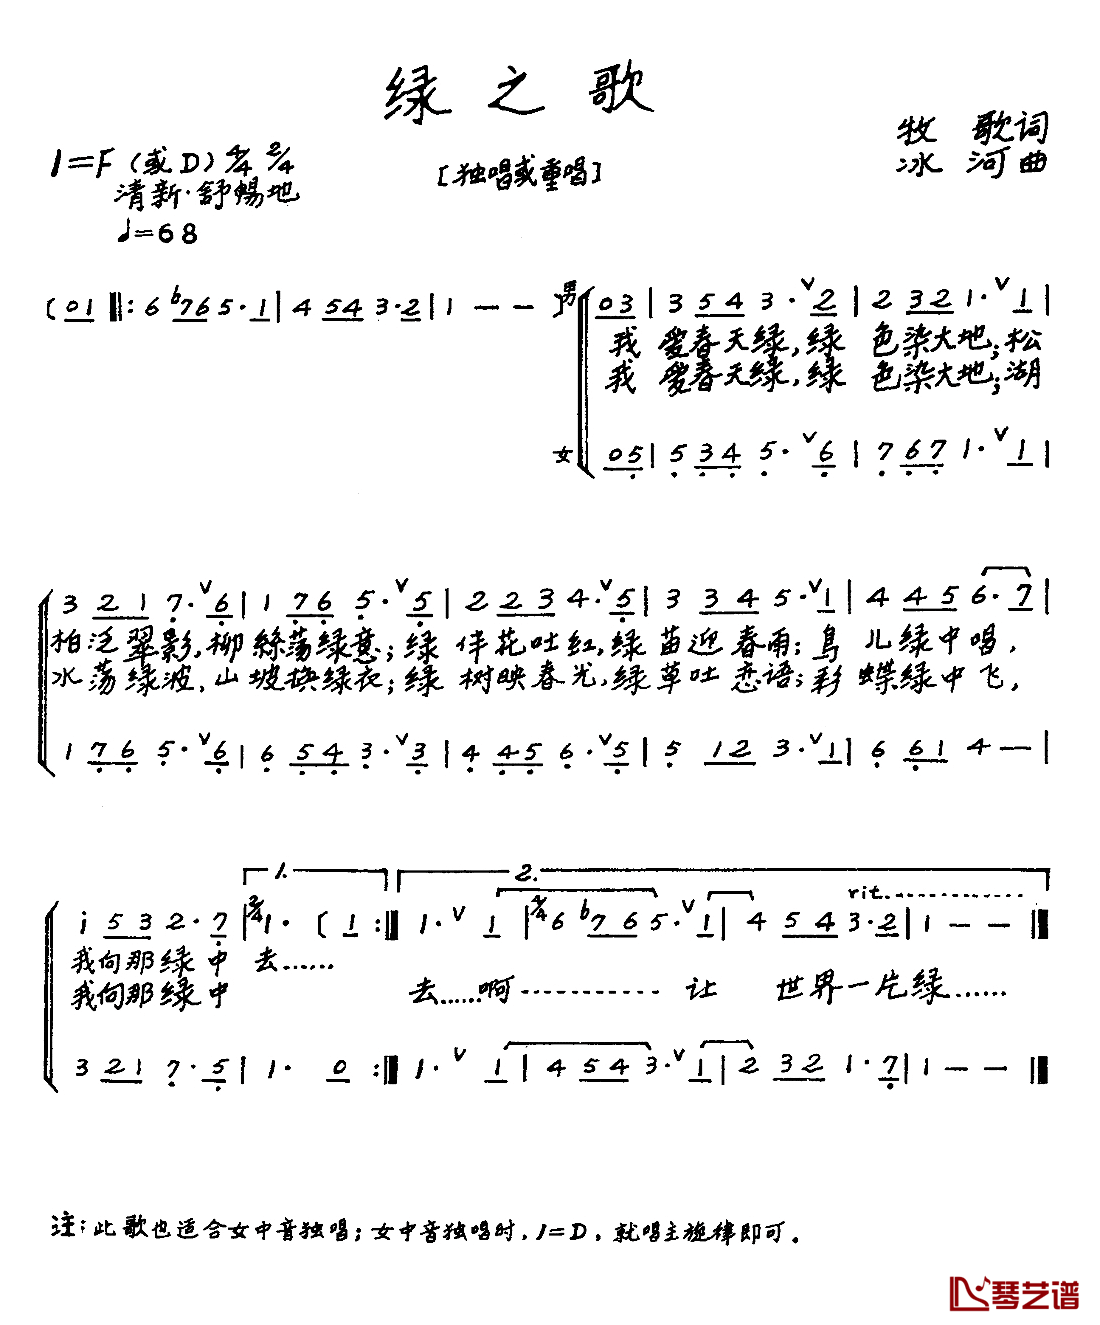 绿之歌
牧 歌词
冰 河曲
1=F（或D）4/4 2/4
[独唱或重唱]
清新·舒暢地
♩=68
(01 ‖: 6 b765·1 | 4 543·2 | 1 — — )
男 03 | 3 543·∨2 | 2 321·∨1 |
我 爱春天绿,绿 色染大地;松
我 爱春天绿,绿 色染大地;湖
女 05 | 5 345·∨6 | 7 671·∨1 |
3 217·∨6 | 1 765·∨5 | 2 234·∨5 | 3 345·∨1 | 4 456·7 |
柏泛翠影,柳絲荡绿意;绿 伴花吐红,绿苗迎春雨;鸟 儿绿中唱,
水荡绿波,山坡换绿衣;绿 树映春光,绿草吐恋语;彩 蝶绿中飞,
1 765·∨6 | 6 543·∨3 | 4 456·∨5 | 5 123·∨1 | 6 614— |
1. 2. rit.
i 532·7 | 2/4 1· (1 :‖ 1·∨1 | 4/4 6 b765·∨1 | 4 543·2 | 1 — — ‖
我向那绿中 去……
我向那绿中 去……啊………… 让 世界一片绿……
3 217·5 | 1· 0 :‖ 1·∨1 | 4 543·∨1 | 2 321·7 | 1 — — ‖
注:此歌也适合女中音独唱;女中音独唱时,1=D,就唱主旋律即可。
琴艺谱